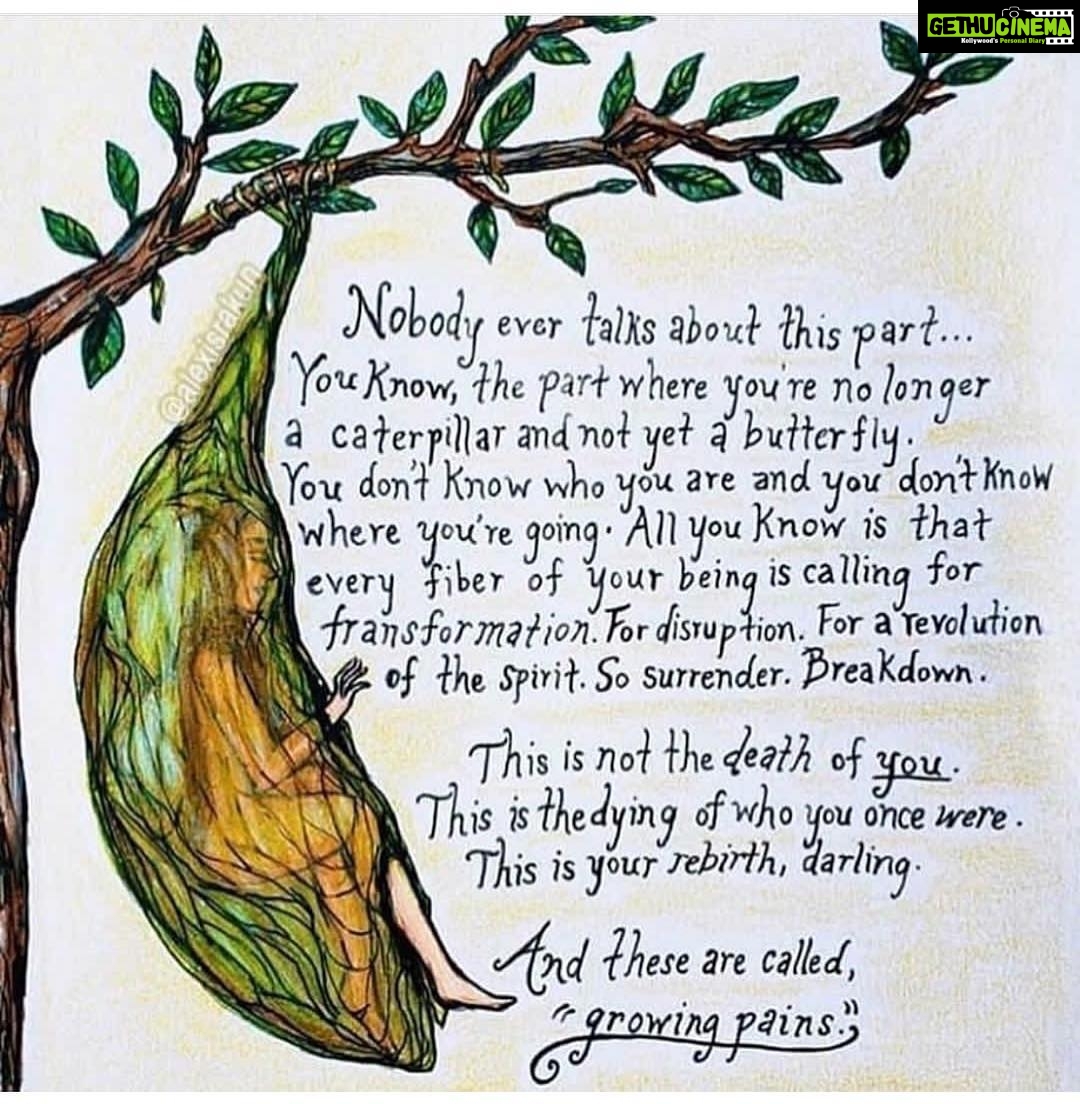 GETHUCINEMA
Kollywood's Personal Diary
@alexisrakun
Nobody ever talks about this part...
You Know, the part where you're no longer
a caterpillar and not yet a butterfly.
You don't know who you are and you don't know
where you're going. All you know is that
every fiber of your being is calling for
transformation. For disruption. For a revolution
of the spirit. So surrender. Breakdown.
This is not the death of you.
This is the dying of who you once were.
This is your rebirth, darling.
And these are called,
"growing pains."